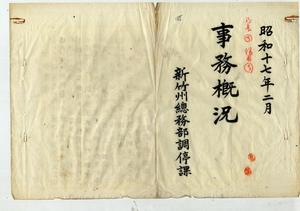 昭和十七年二月
事務概況
新竹州總務部調停課